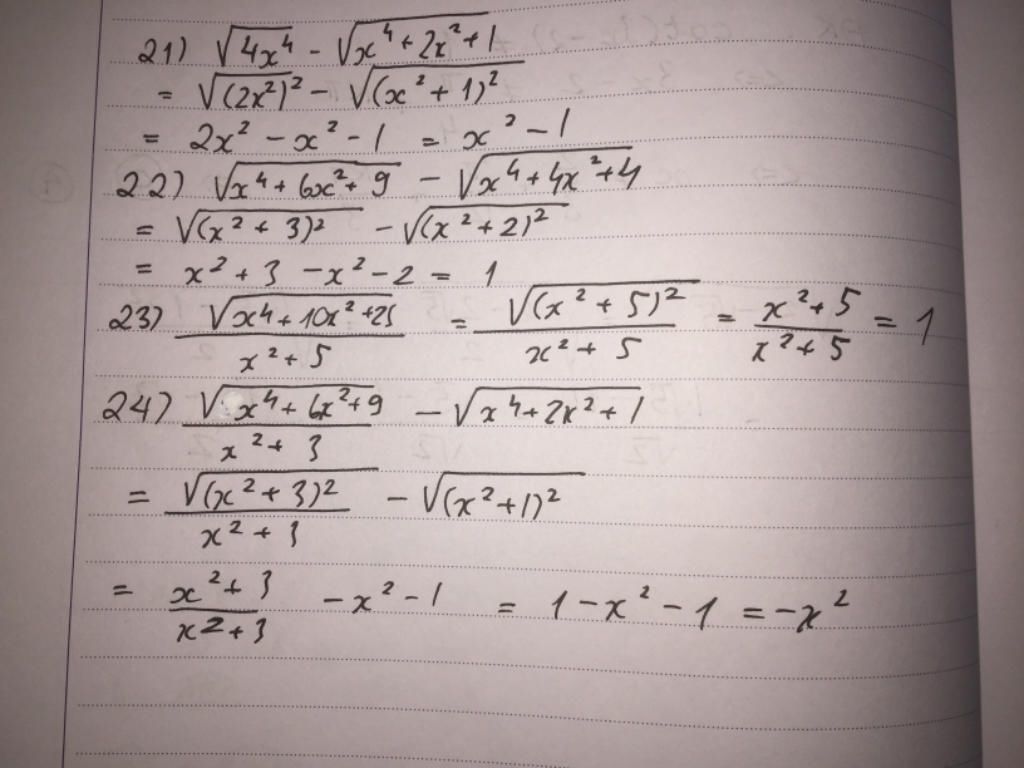 21) √(4x⁴) - √(x⁴ + 2x² + 1)
= √((2x²)²) - √((x² + 1)²)
= 2x² - x² - 1 = x² - 1
22) √(x⁴ + 6x² + 9) - √(x⁴ + 4x² + 4)
= √((x² + 3)²) - √((x² + 2)²)
= x² + 3 - x² - 2 = 1
23) √(x⁴ + 10x² + 25) / (x² + 5) = √((x² + 5)²) / (x² + 5) = (x² + 5) / (x² + 5) = 1
24) √(x⁴ + 6x² + 9) / (x² + 3) - √(x⁴ + 2x² + 1)
= √((x² + 3)²) / (x² + 3) - √((x² + 1)²)
= (x² + 3) / (x² + 3) - x² - 1 = 1 - x² - 1 = -x²